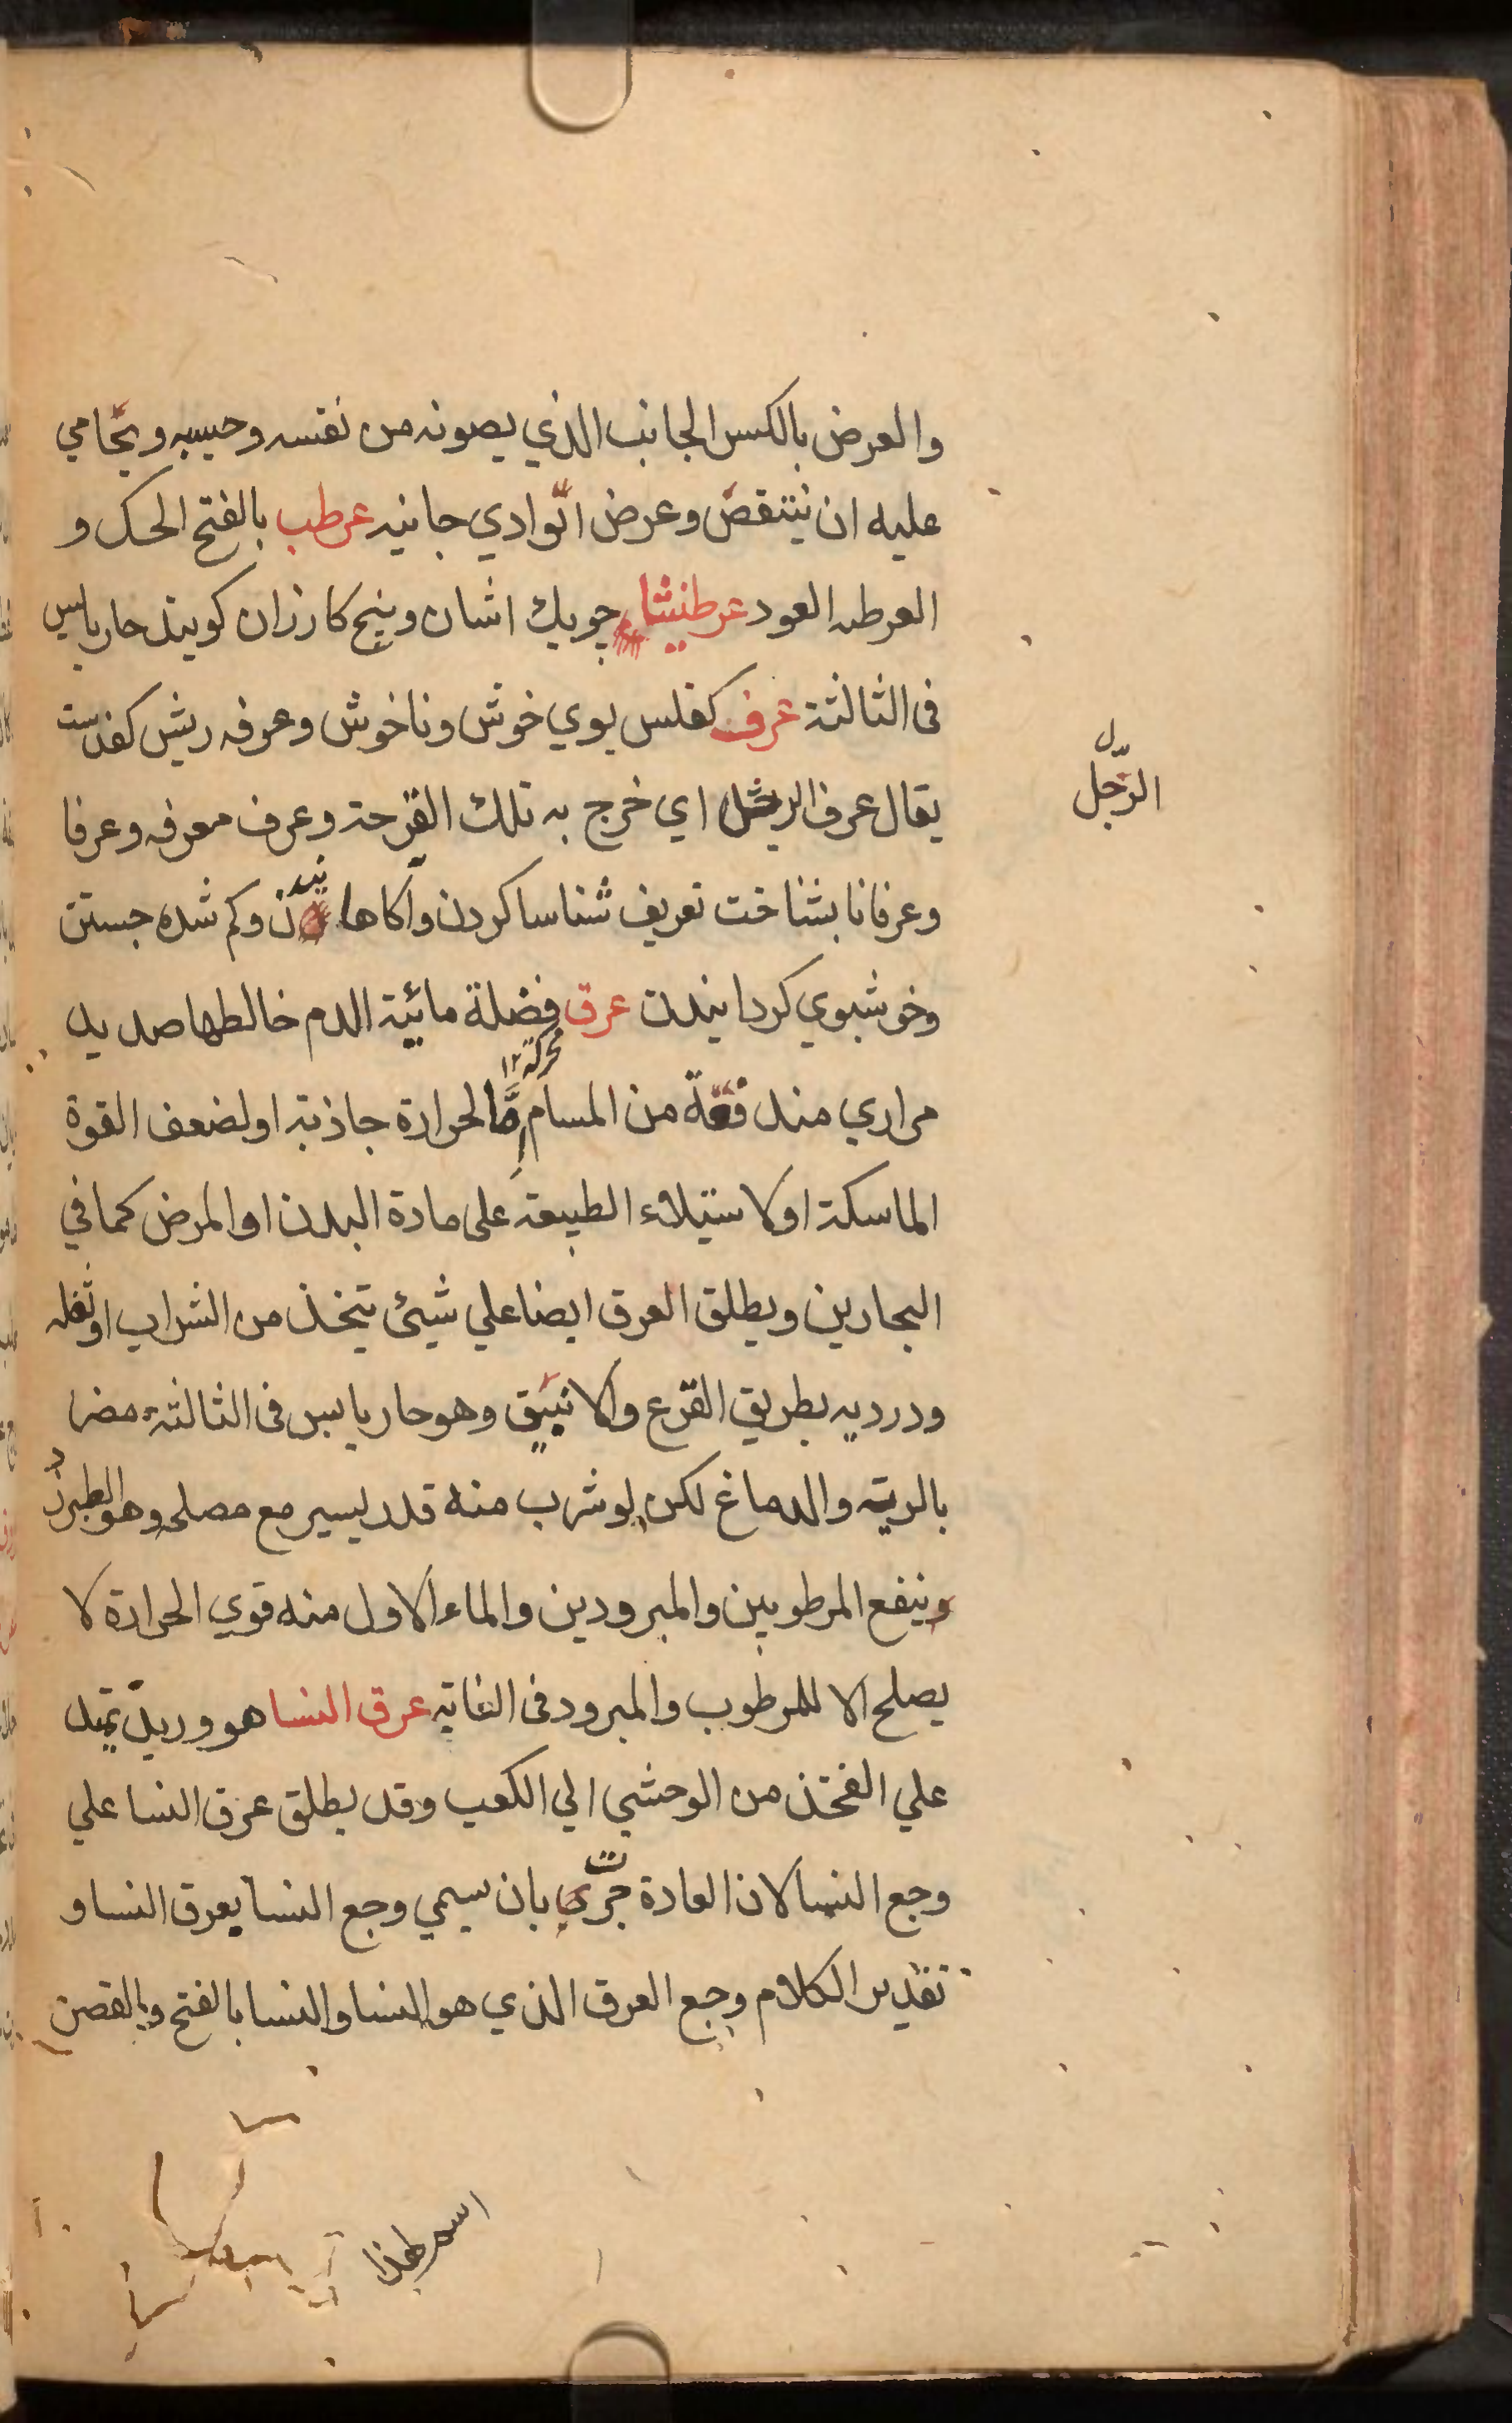 والعرض بالكسر الجانب الذي يصونه من نفسه وحسبه ويحامي
عليه ان ينتقص وعرض الوادي جانبه عرطب بالفتح الحسك و
العرطبه العود عرطنيثا چوبك اشنان وبيخ كازران كويند حار يابس
فى الثالثة عرف كفلس بوي خوش وناخوش وعرفه ريش كفدست
يقال عرف الرجل اي خرج به تلك القرحة وعرف معرفه وعرفا
الرّجل
وعرفانا بشناخت تعريف شناسا كردن وآكاهانيدن وكم شده جستن
وخوشبوي كردانيدن عرق محركة ١٢ فضلة مائية الدم خالطها صديد
مراري مندفعة من المسام امّا لحرارة جاذبة او لضعف القوة
الماسكة او لاستيلاء الطبيعة على مادة البدن او المرض كما في
البحارين ويطلق العرق ايضا علي شيئ يتخذ من الشراب او ثفله
ودرديه بطريق القرع والانبيق وهو حار يابس فى الثالثة مضر
بالرية والدماغ لكن لو شرب منه قدر يسير مع مصلح وهو الطبرزد
وينفع المرطوبين والمبرودين والماء الاول منه قوي الحرارة لا
يصلح الا للمرطوب والمبرود فى الغاية عرق النسا هو وريد يمتد
علي الفخذ من الوحشي الي الكعب وقد يطلق عرق النسا علي
وجع النسا لان العادة جرت بان سيمي وجع النسا بعرق النسا و
تقدير الكلام وجع العرق الذي هو النسا والنسا بالفتح وبالقصر
اسم لهذا